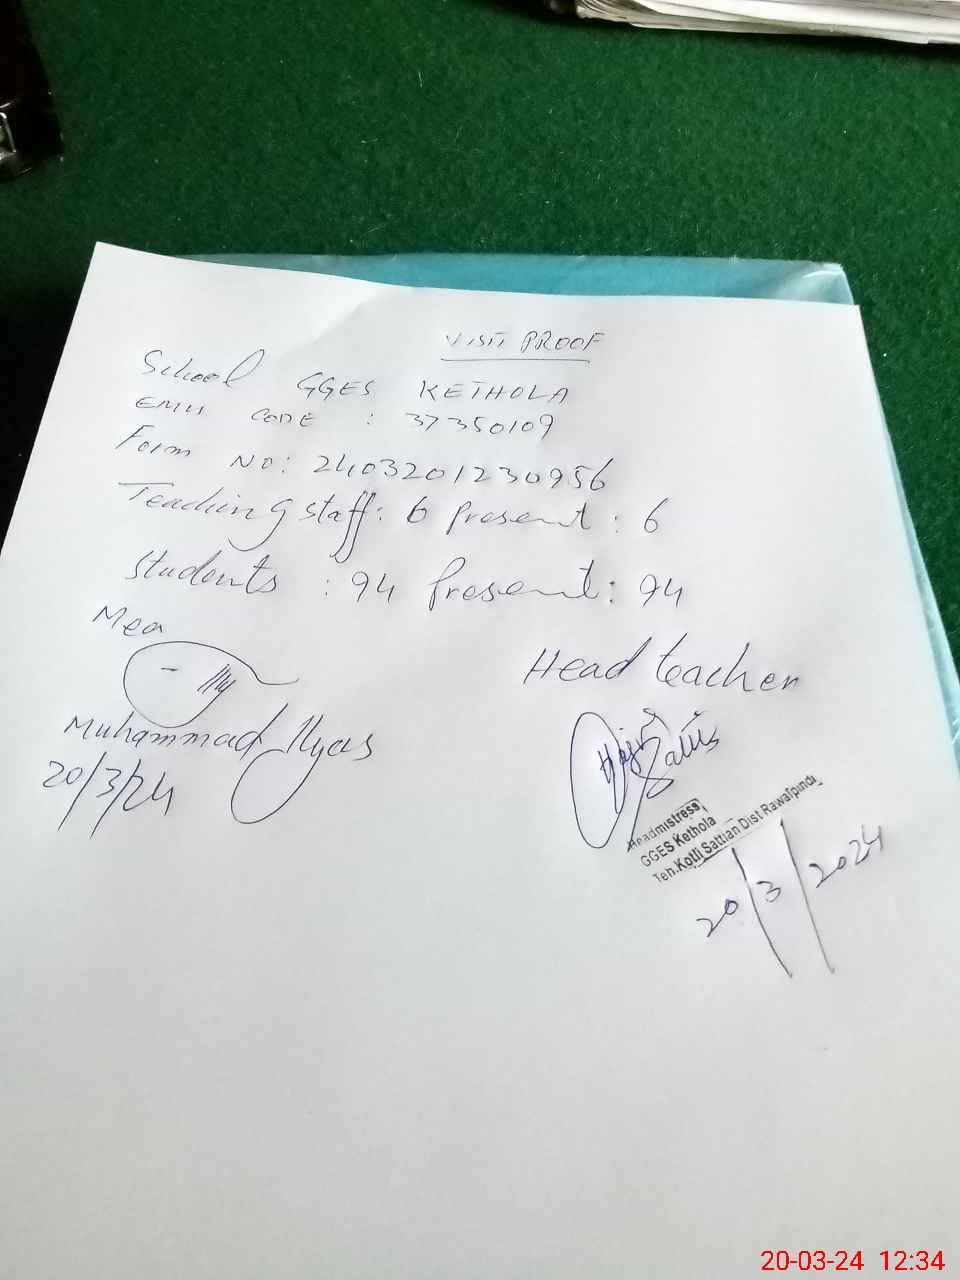 VISIT PROOF
School GGES KETHOLA
EMIS CODE : 37350109
Form No: 2403201230956
Teaching staff: 6 Present : 6
Students : 94 Present: 94
Mea
Head teacher
Muhammad Ilyas
20/3/24
Headmistress
GGES Kethola
Teh.Kotli Sattian Dist Rawalpindi
20/3/2024
20-03-24 12:34